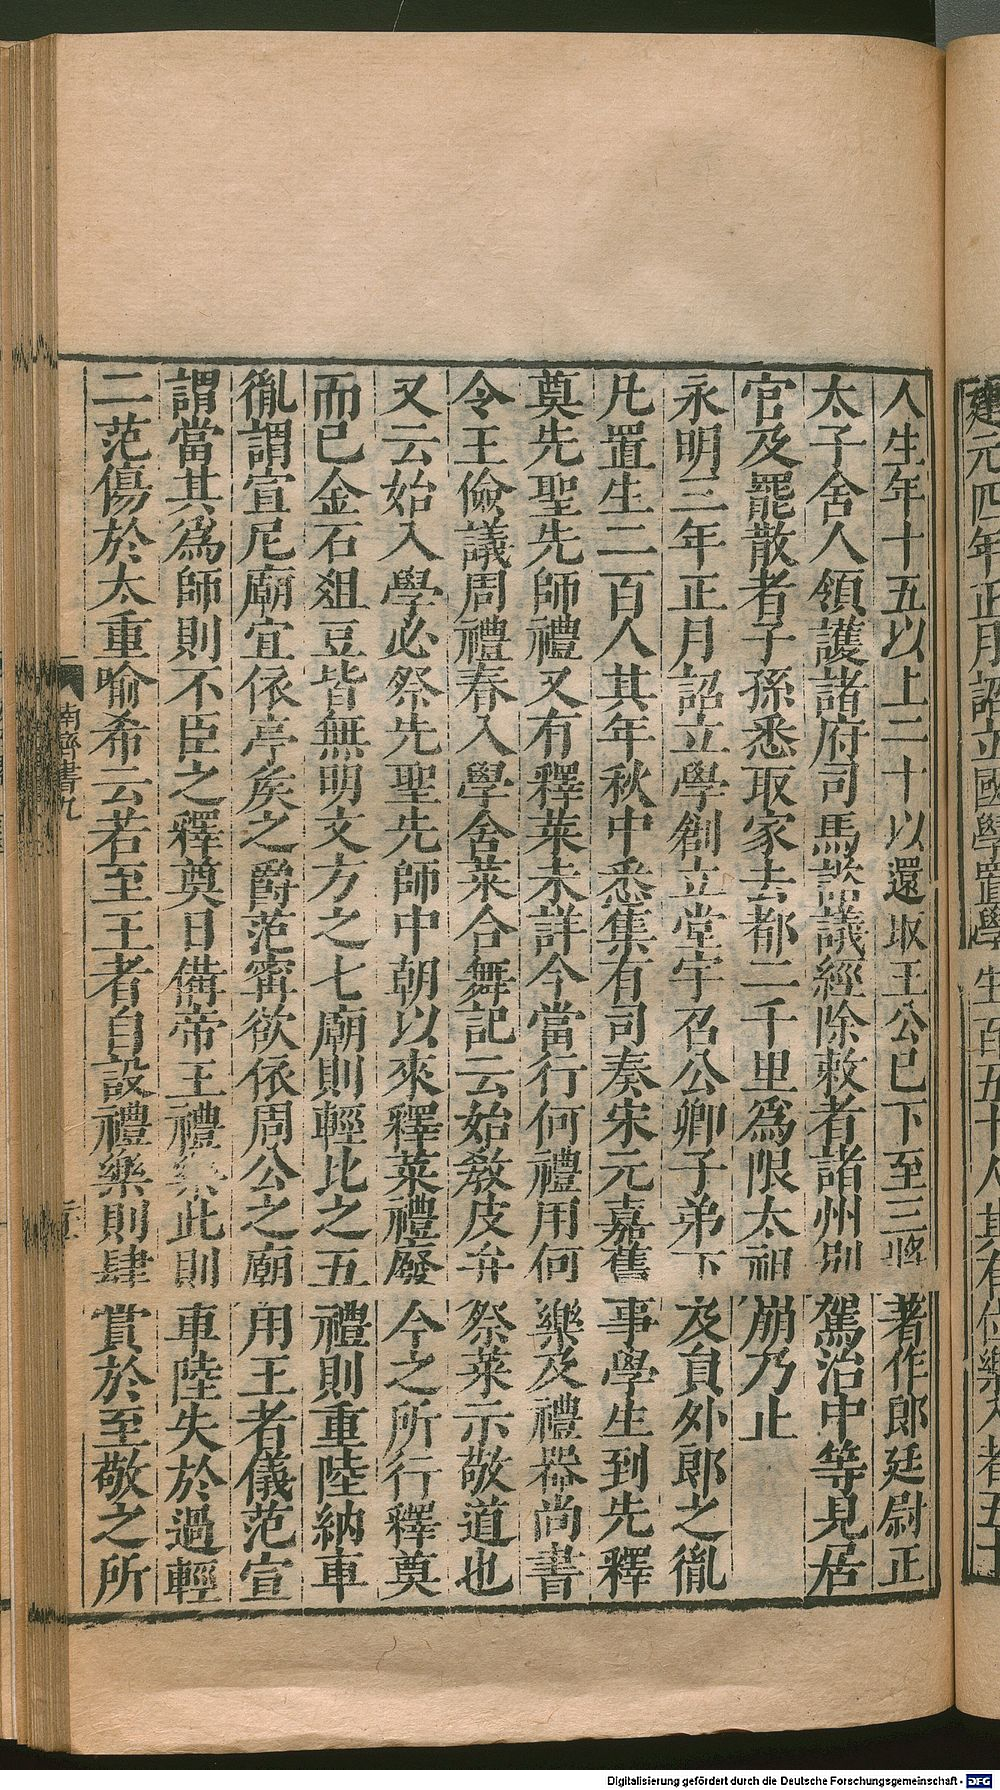 建元四年正月詔立國學置學生百五十人其有位樂入者五十
人生年十五以上二十以還取王公已下至三將著作郎廷尉正
太子舍人領護諸府司馬諮議經除敕者諸州別駕治中等見居
官及罷散者子孫悉取家去都二千里為限太祖崩乃止
永明三年正月詔立學創立堂宇召公卿子弟下及員外郎之胤
凡置生二百人其年秋中悉集有司奏宋元嘉舊事學生到先釋
奠先聖先師禮又有釋菜未詳今當行何禮用何樂及禮器尚書
令王儉議周禮春入學舍菜合舞記云始教皮弁祭菜示敬道也
又云始入學必祭先聖先師中朝以來釋菜禮廢今之所行釋奠
而已金石俎豆皆無明文方之七廟則輕比之五禮則重陸納車
胤謂宣尼廟宜依亭矦之爵范甯欲依周公之廟用王者儀范宣
謂當其為師則不臣之釋奠日備帝王禮樂此則車陸失於過輕
二范傷於太重喻希云若至王者自設禮樂則肆賞於至敬之所
南齊書九
Digitalisierung gefördert durch die Deutsche Forschungsgemeinschaft - DFG